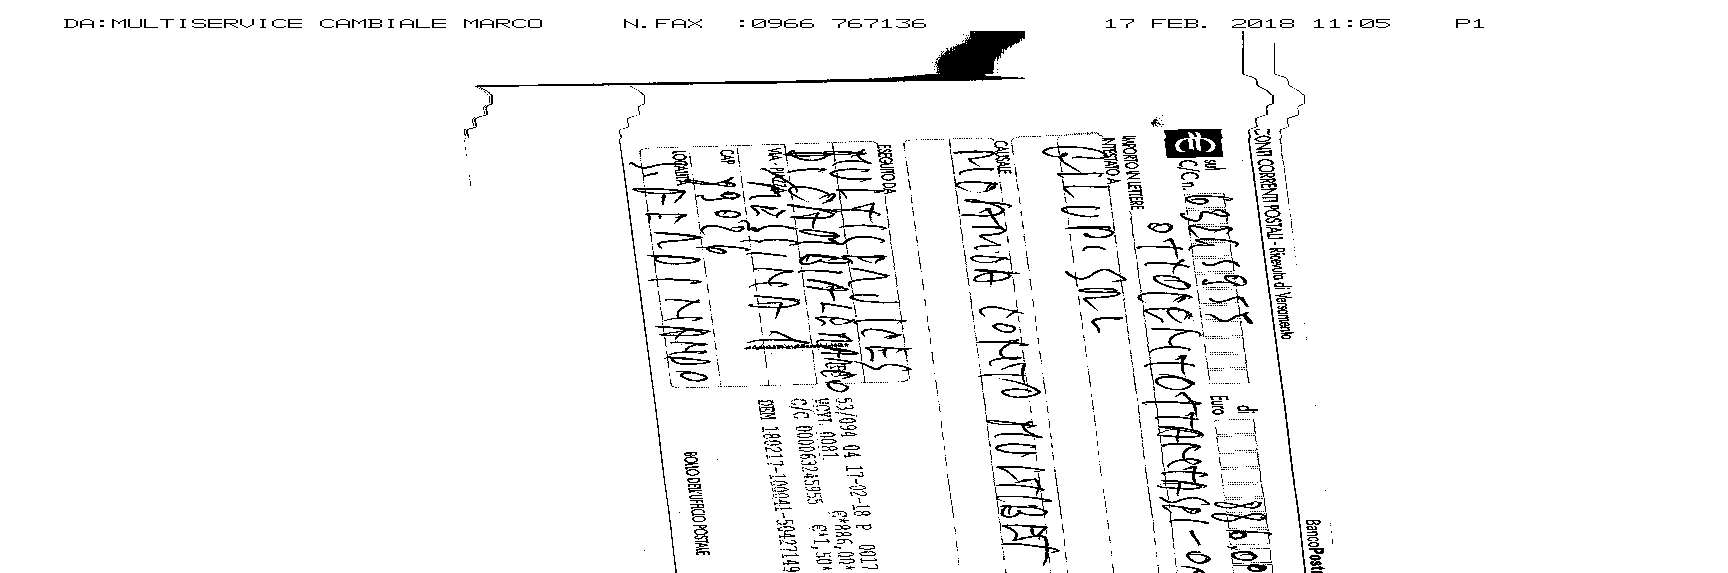 DA:MULTISERVICE CAMBIALE MARCO N.FAX :0966 767136 17 FEB. 2018 11:05 P1
CONTI CORRENTI POSTALI - Ricevuta di Versamento BancoPosta
sul C/C n. 63245955 di Euro 886,00
IMPORTO IN LETTERE OTTOCENTOTTANTASEI-0
INTESTATO A
QILUPI SRL
CAUSALE
RICARICA CONTO MULTIBET
ESEGUITO DA
MULTISERVICES
DI CAMBIALE MARCO
VIA - PIAZZA RESSINA 1
CAP 89026
LOCALITÀ S.FERDINANDO
53/094 04 17-02-18 P 0017
VCYT. 0081 €*886,00*
C/C 000063245955 €*1,50*
BOLLO DELL'UFFICIO POSTALE